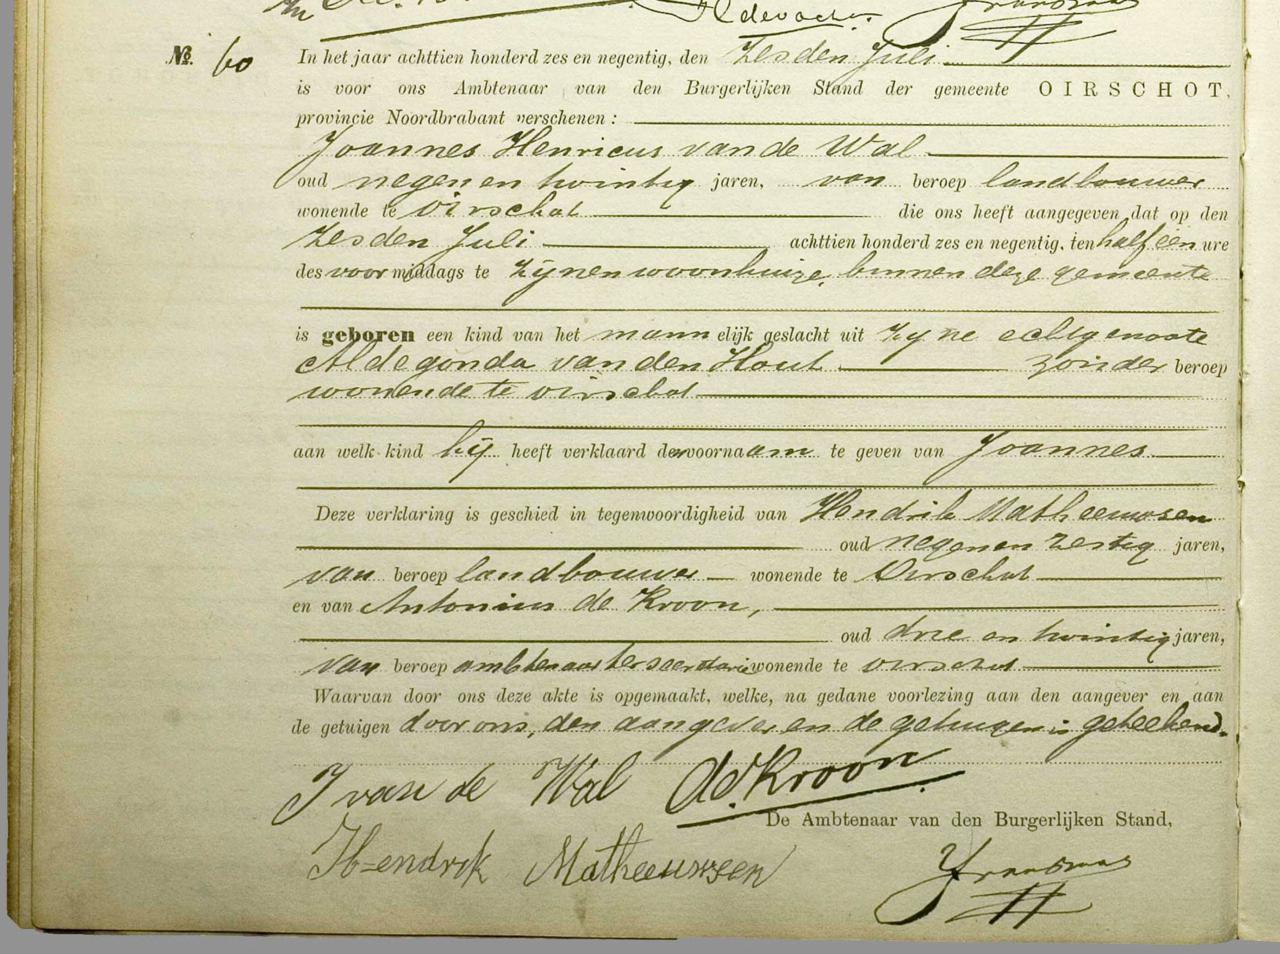 Nº. 60
In het jaar achttien honderd zes en negentig, den Zesden Juli
is voor ons Ambtenaar van den Burgerlijken Stand der gemeente OIRSCHOT,
provincie Noordbrabant verschenen :
Joannes Henricus van de Wal
oud negen en twintig jaren, van beroep landbouwer
wonende te Oirschot die ons heeft aangegeven dat op den
Zesden Juli achttien honderd zes en negentig, ten half één ure
des voormiddags te zijnen woonhuize, binnen deze gemeente
is geboren een kind van het mannelijk geslacht uit zijne echtgenoote
Aldegonda van den Hout zonder beroep
wonende te Oirschot
aan welk kind hij heeft verklaard den voornaam te geven van Joannes
Deze verklaring is geschied in tegenwoordigheid van Hendrik Matheeuwsen
oud negen en zestig jaren,
van beroep landbouwer wonende te Oirschot
en van Antonius de Kroon,
oud drie en twintig jaren,
van beroep ambtenaar ter secretarie wonende te Oirschot
Waarvan door ons deze akte is opgemaakt, welke, na gedane voorlezing aan den aangever en aan
de getuigen door ons, den aangever en de getuigen is geteekend.
J van de Wal Ad. Kroon
De Ambtenaar van den Burgerlijken Stand,
Hendrik Matheeuwsen